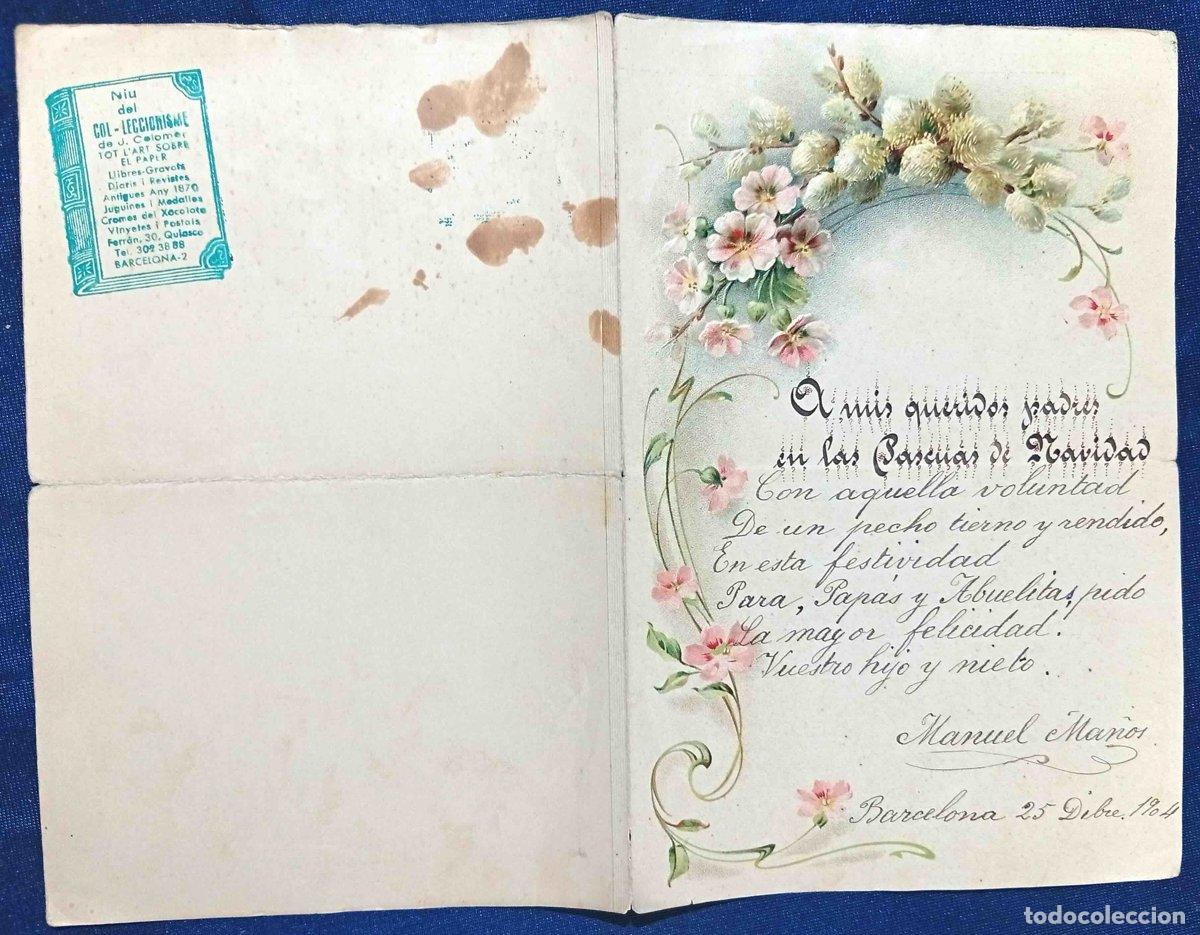 Niu
del
COL-LECCIONISME
de J. Colomer
TOT L'ART SOBRE
EL PAPER
Llibres-Gravats
Diaris i Revistes
Antigues Any 1870
Juguines i Medalles
Cromos del Xocolate
Vinyetes i Postals
Ferrán, 30, Quiosco
Tel. 302 38 88
BARCELONA-2
A mis queridos padres
en las Pascuas de Navidad
Con aquella voluntad
De un pecho tierno y rendido,
En esta festividad
Para, Papás y Abuelitas, pido
La mayor felicidad.
Vuestro hijo y nieto.
Manuel Maños
Barcelona 25 Dibre. 1904
todocoleccion